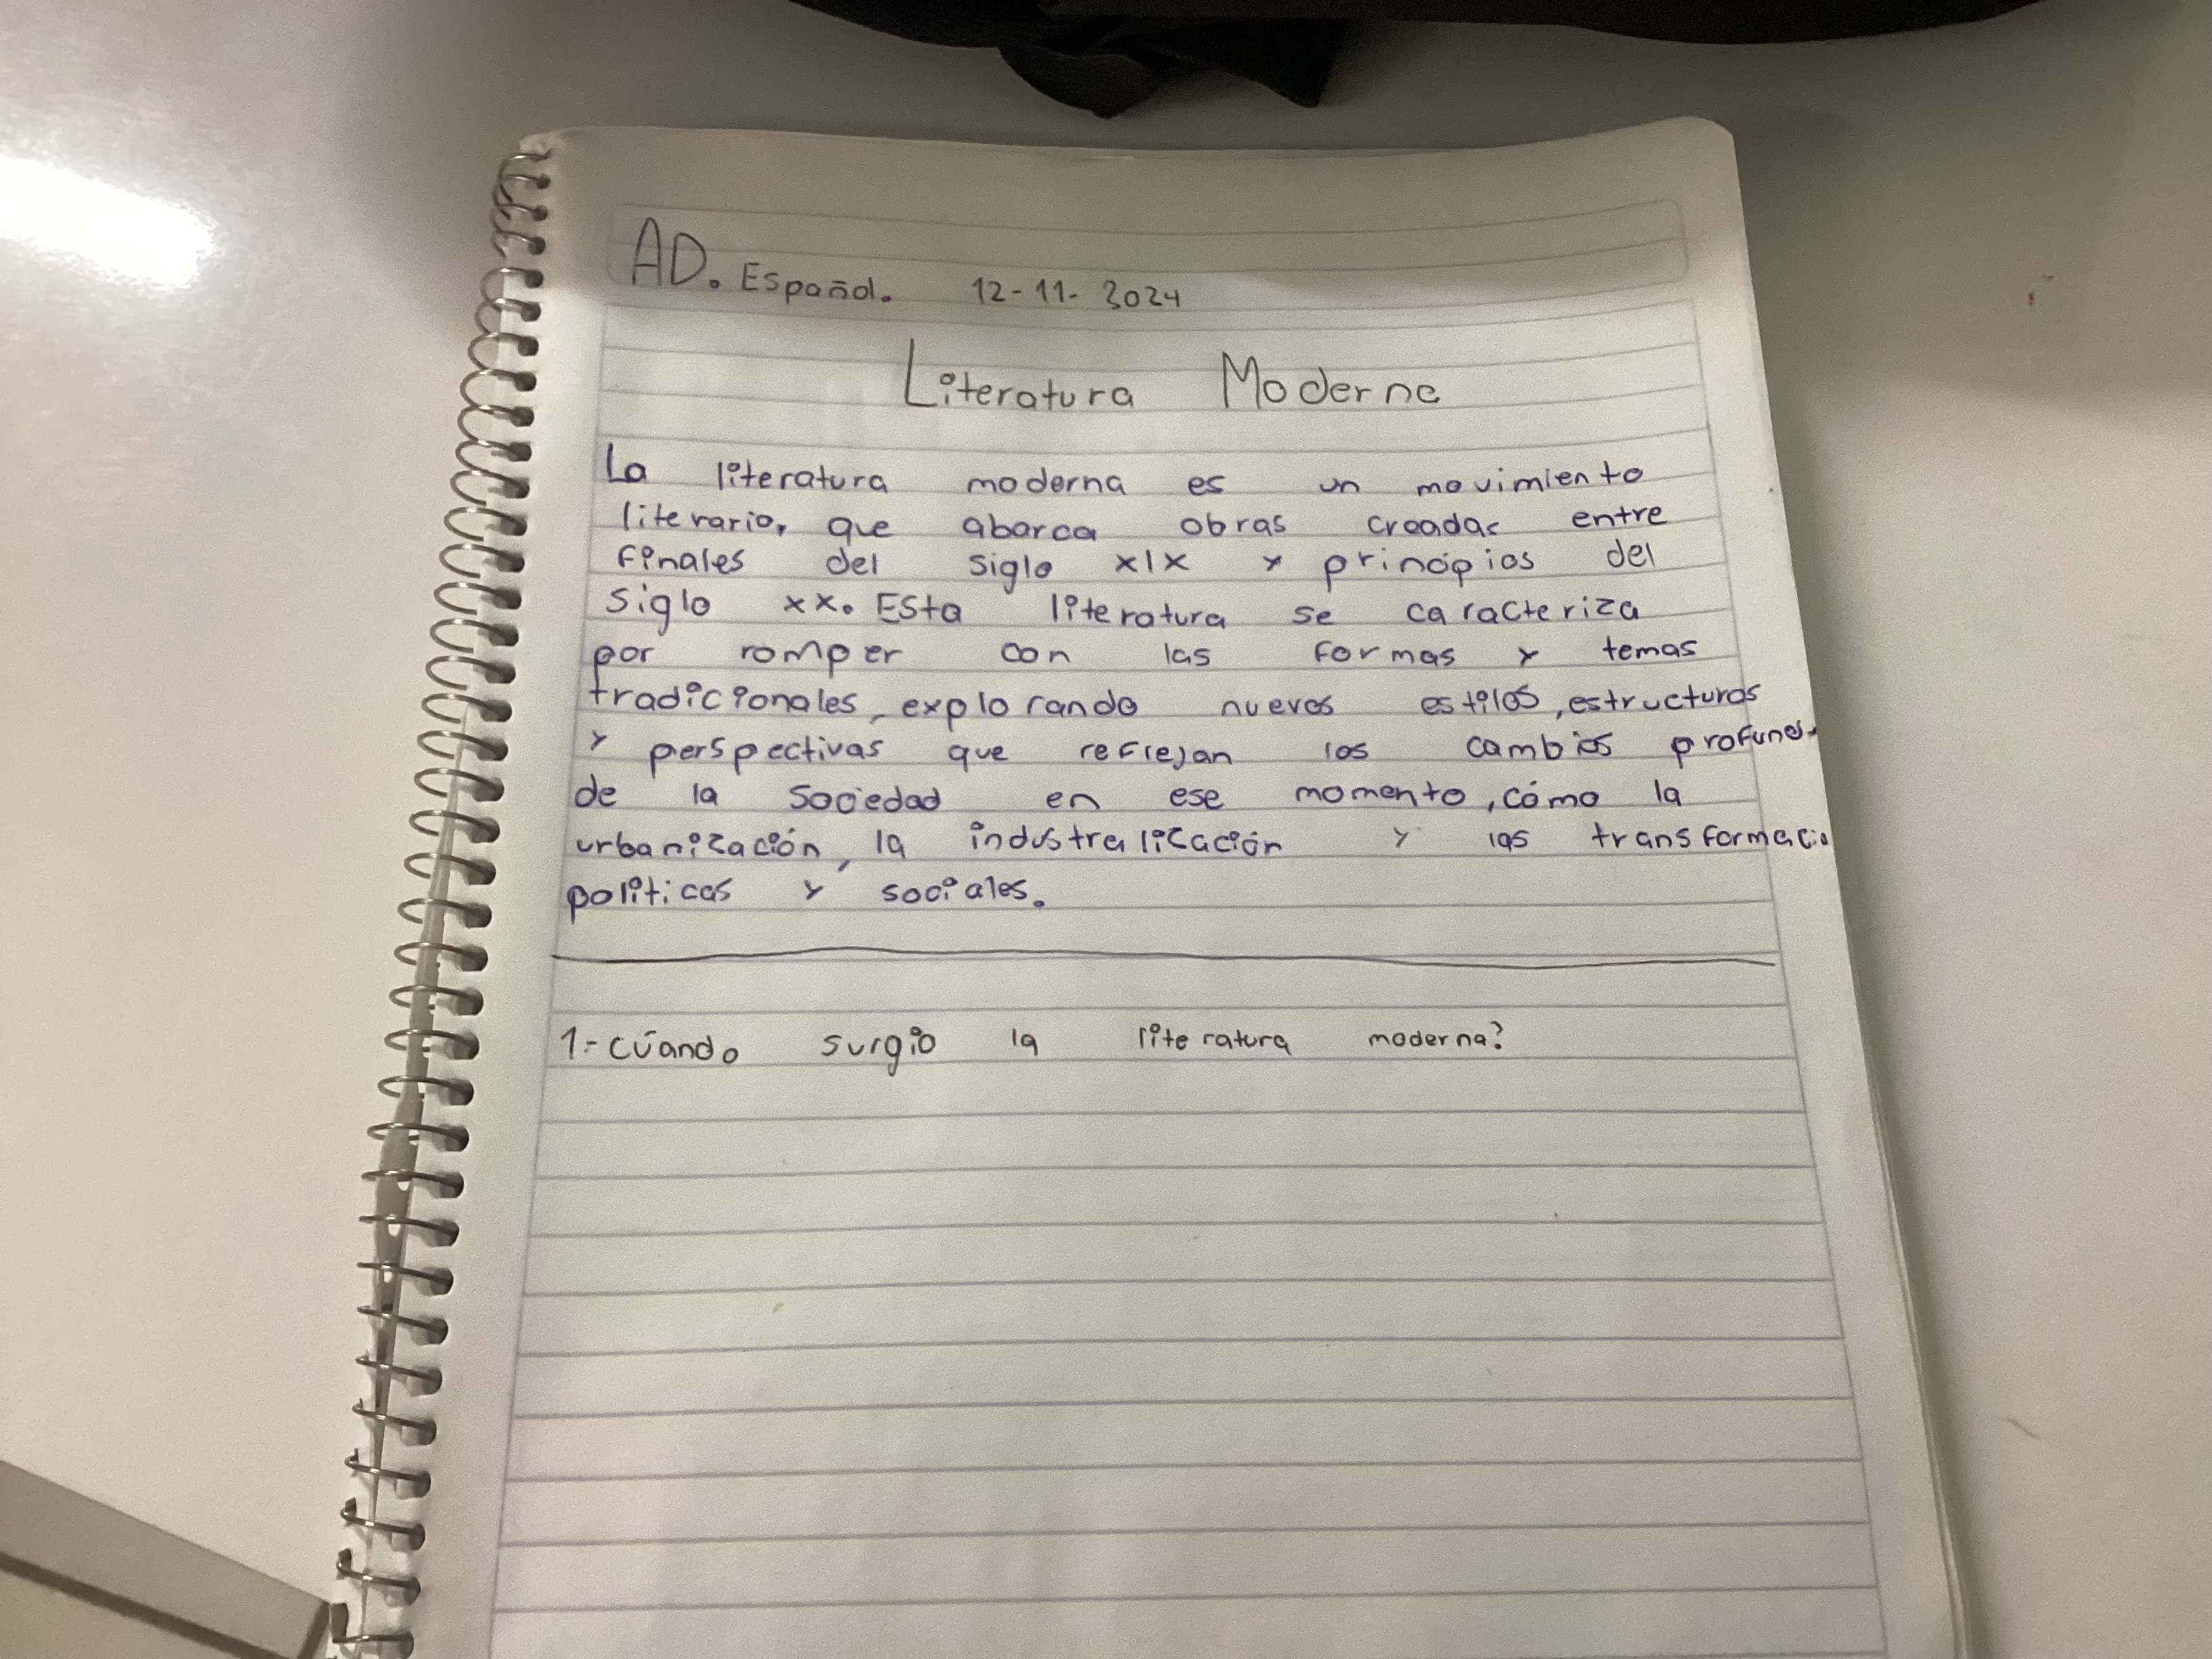 AD. Español. 12-11-2024
Literatura Moderna
La literatura moderna es un movimiento
literario, que abarca obras creadas entre
finales del siglo XIX y principios del
siglo XX. Esta literatura se caracteriza
por romper con las formas y temas
tradicionales, explorando nuevos estilos, estructuras
y perspectivas que reflejan los cambios
de la sociedad en ese momento, cómo la
urbanización, la industralización y las transformacio
politicas y sociales.
1.- cúando surgio la literatura moderna?